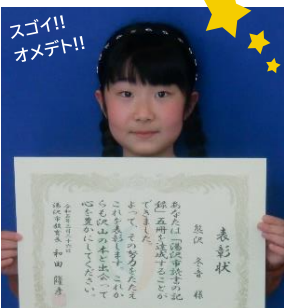 スゴイ!!
オメデト!!
表彰状
熊沢 冬音 様
あなたは「湯沢市読書の記
録」五冊を達成することが
できました。
よって、その努力をたたえ
これを表彰します。これか
らも沢山の本と出会って
心を豊かにしてください。
湯沢市教育長 和田 隆彦